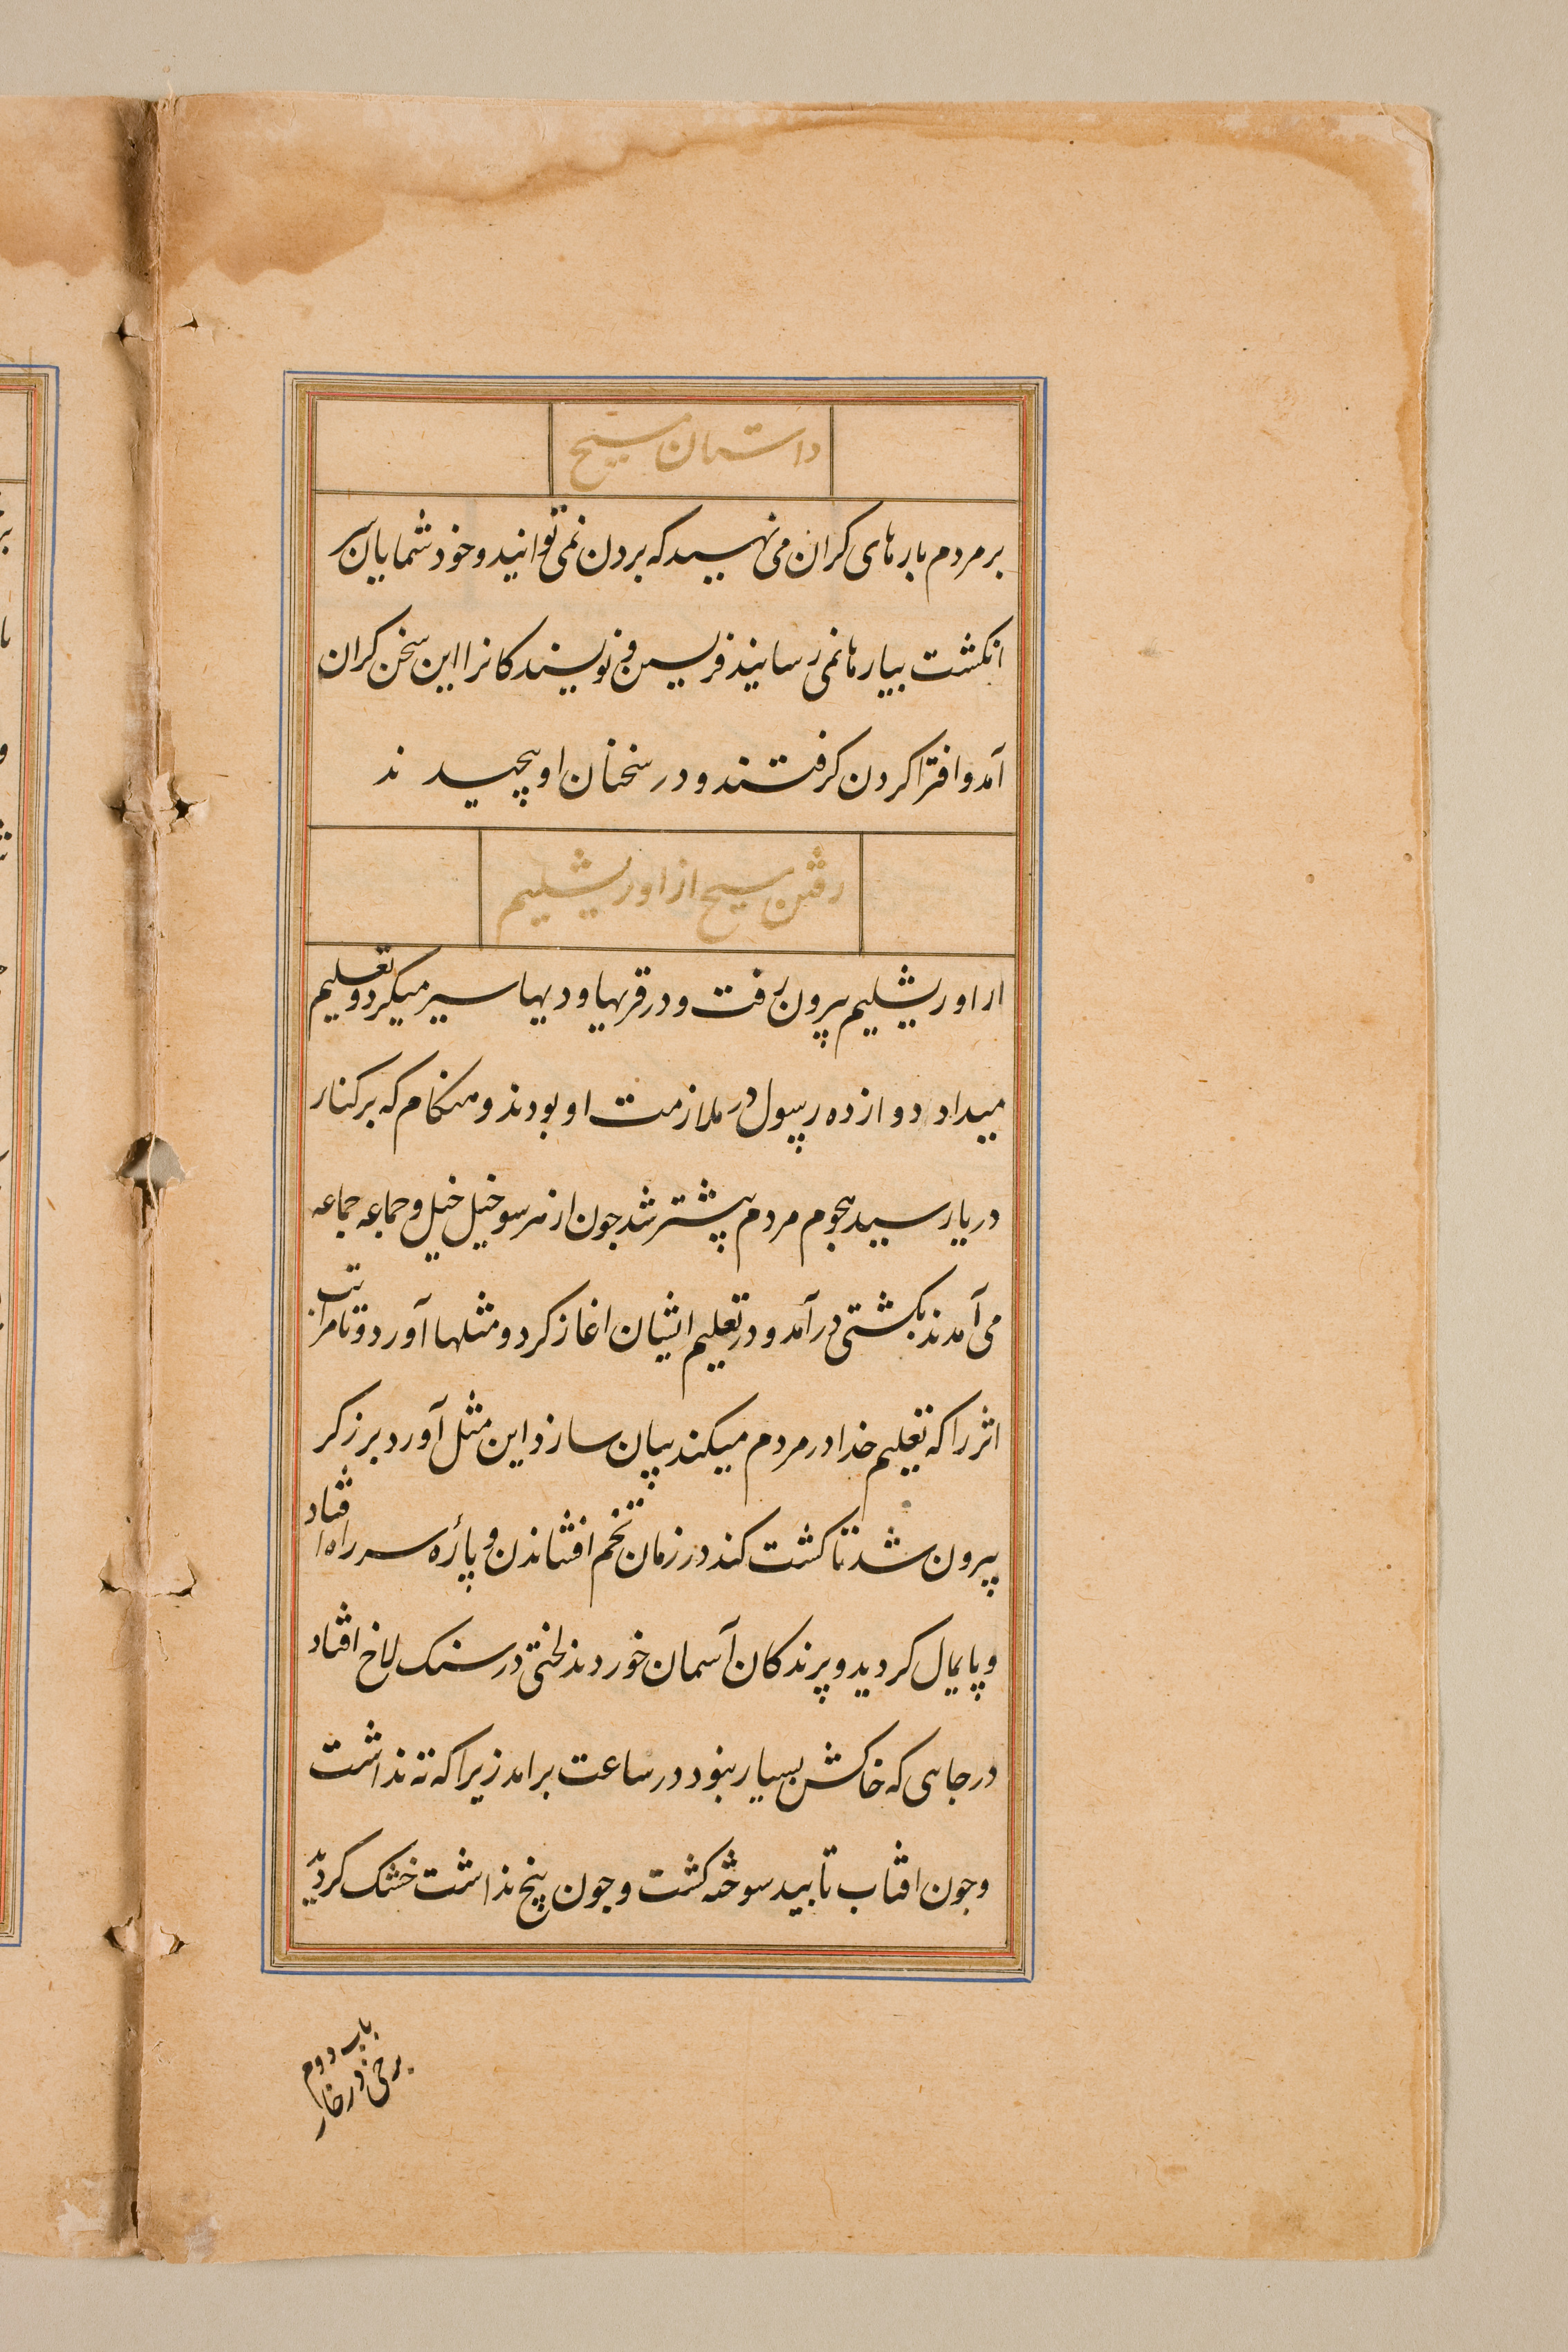 داستان مسیح
بر مردم بارهای کران می نهید که بردن نمی توانید و خود شمایان سر
انکشت ببارها نمی رسانید فریسن و نویسندکانرا این سخن کران
آمد و افترا کردن کرفتند و در سخنان او پیچیدند
رفتن مسیح از اورشلیم
از اورشلیم بیرون رفت و در قریها و دیها سیر میکرد و تعلیم
میداد دوازده رسول در ملازمت او بودند و هنکام که بر کنار
دریا رسید هجوم مردم بیشتر شد جون از هر سو خیل خیل و جماعه جماعه
می آمدند بکشتی در آمد و در تعلیم ایشان اغاز کرد و مثلها آورد و تا مراتب
اثر را که تعلیم خدا در مردم میکند بیان سازد این مثل آورد برزکر
بیرون شد تا کشت کند در زمان تخم افشاندن و پارهٔ سر راه افتاد
و پایمال کردید و پرندکان آسمان خوردند لختی در سنک لاخ افتاد
در جاهی که خاکش بسیار نبود در ساعت برامد زیرا که ته نداشت
و جون افتاب تابید سوخته کشت و جون بیخ نداشت خشک کردید
باب دوم
برخی در خار